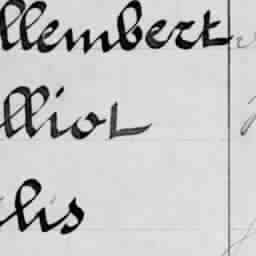 llembert
lliot
lis